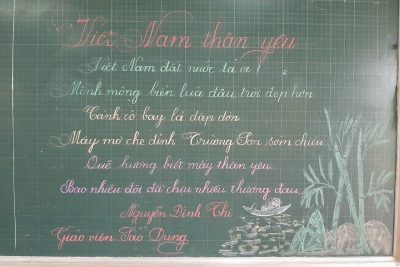 Việt Nam thân yêu
Việt Nam đất nước ta ơi!
Mênh mông biển lúa đâu trời đẹp hơn
Cánh cò bay lả dập dờn
Mây mờ che đỉnh Trường Sơn sớm chiều
Quê hương biết mấy thân yêu
Bao nhiêu đời đã chịu nhiều thương đau
Nguyễn Đình Thi
Giáo viên: Tạo Dung